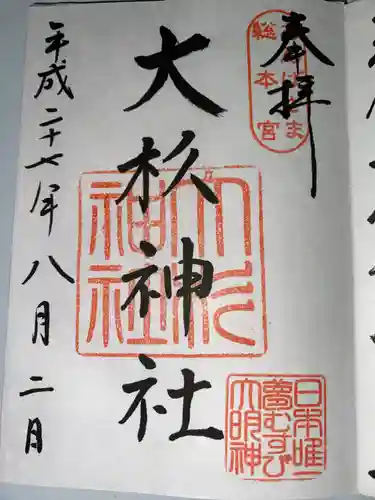 奉拝
総本宮
大杉神社
大杉神社
日本唯一
夢むすび
大明神
平成二十七年八月二日